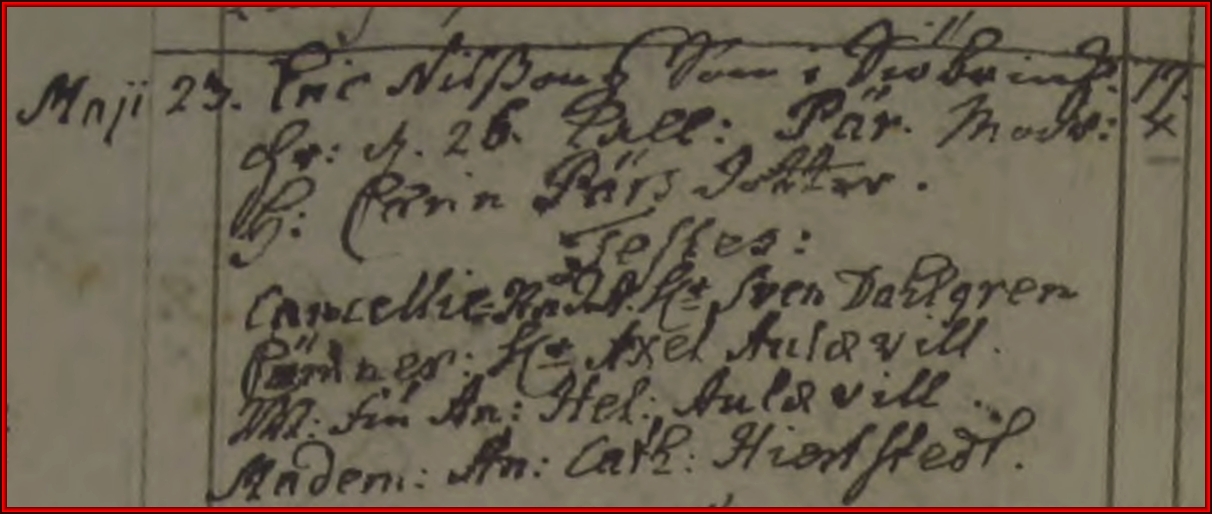 Maji 23. Eric Nilßons Son i Siöbringz. 17.
fr: d. 26. kall: Pär. Modr: 4
H: Carin Pärs dotter.
Testes:
Cancellie- Hr Sven Dahlgren
Hr Axel Aulævill
M: An: Hel: Aulævill
Madem: An: Cath: Hiertstedt.